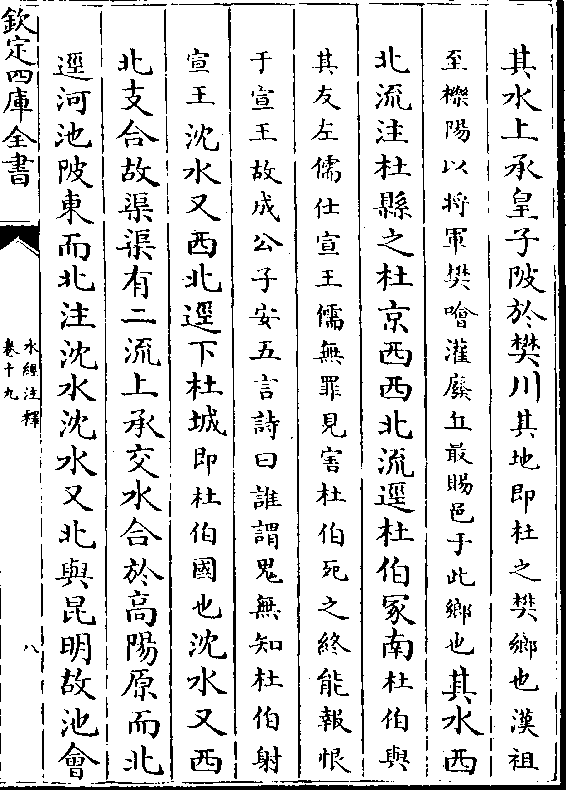 其水上承皇子陂於樊川其地即杜之樊鄉也漢祖
至櫟陽以將軍樊噲灌廢丘最賜邑于此鄉也其水西
北流注杜縣之杜京西西北流逕杜伯冢南杜伯與
其友左儒仕宣王儒無罪見害杜伯死之終能報恨
于宣王故成公子安五言詩曰誰謂鬼無知杜伯射
宣王沈水又西北逕下杜城即杜伯國也沈水又西
北支合故渠渠有二流上承交水合於高陽原而北
逕河池陂東而北注沈水沈水又北與昆明故池會
欽定四庫全書
水經注釋
卷十九
八